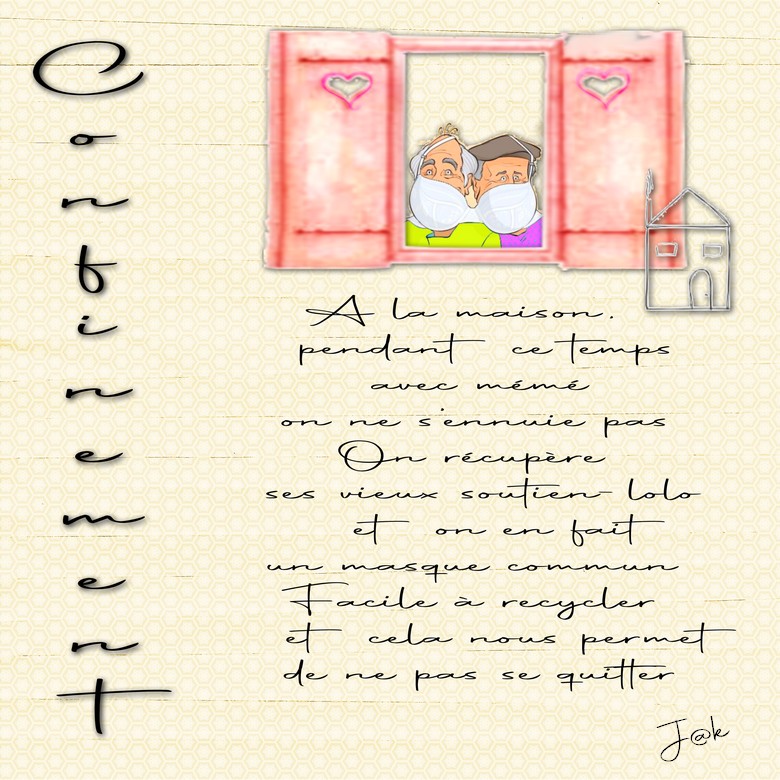 Confinement
A la maison.
pendant ce temps
avec mémé
on ne s'ennuie pas
On récupère
ses vieux soutien-lolo
et on en fait
un masque commun
Facile à recycler
et cela nous permet
de ne pas se quitter
J@k